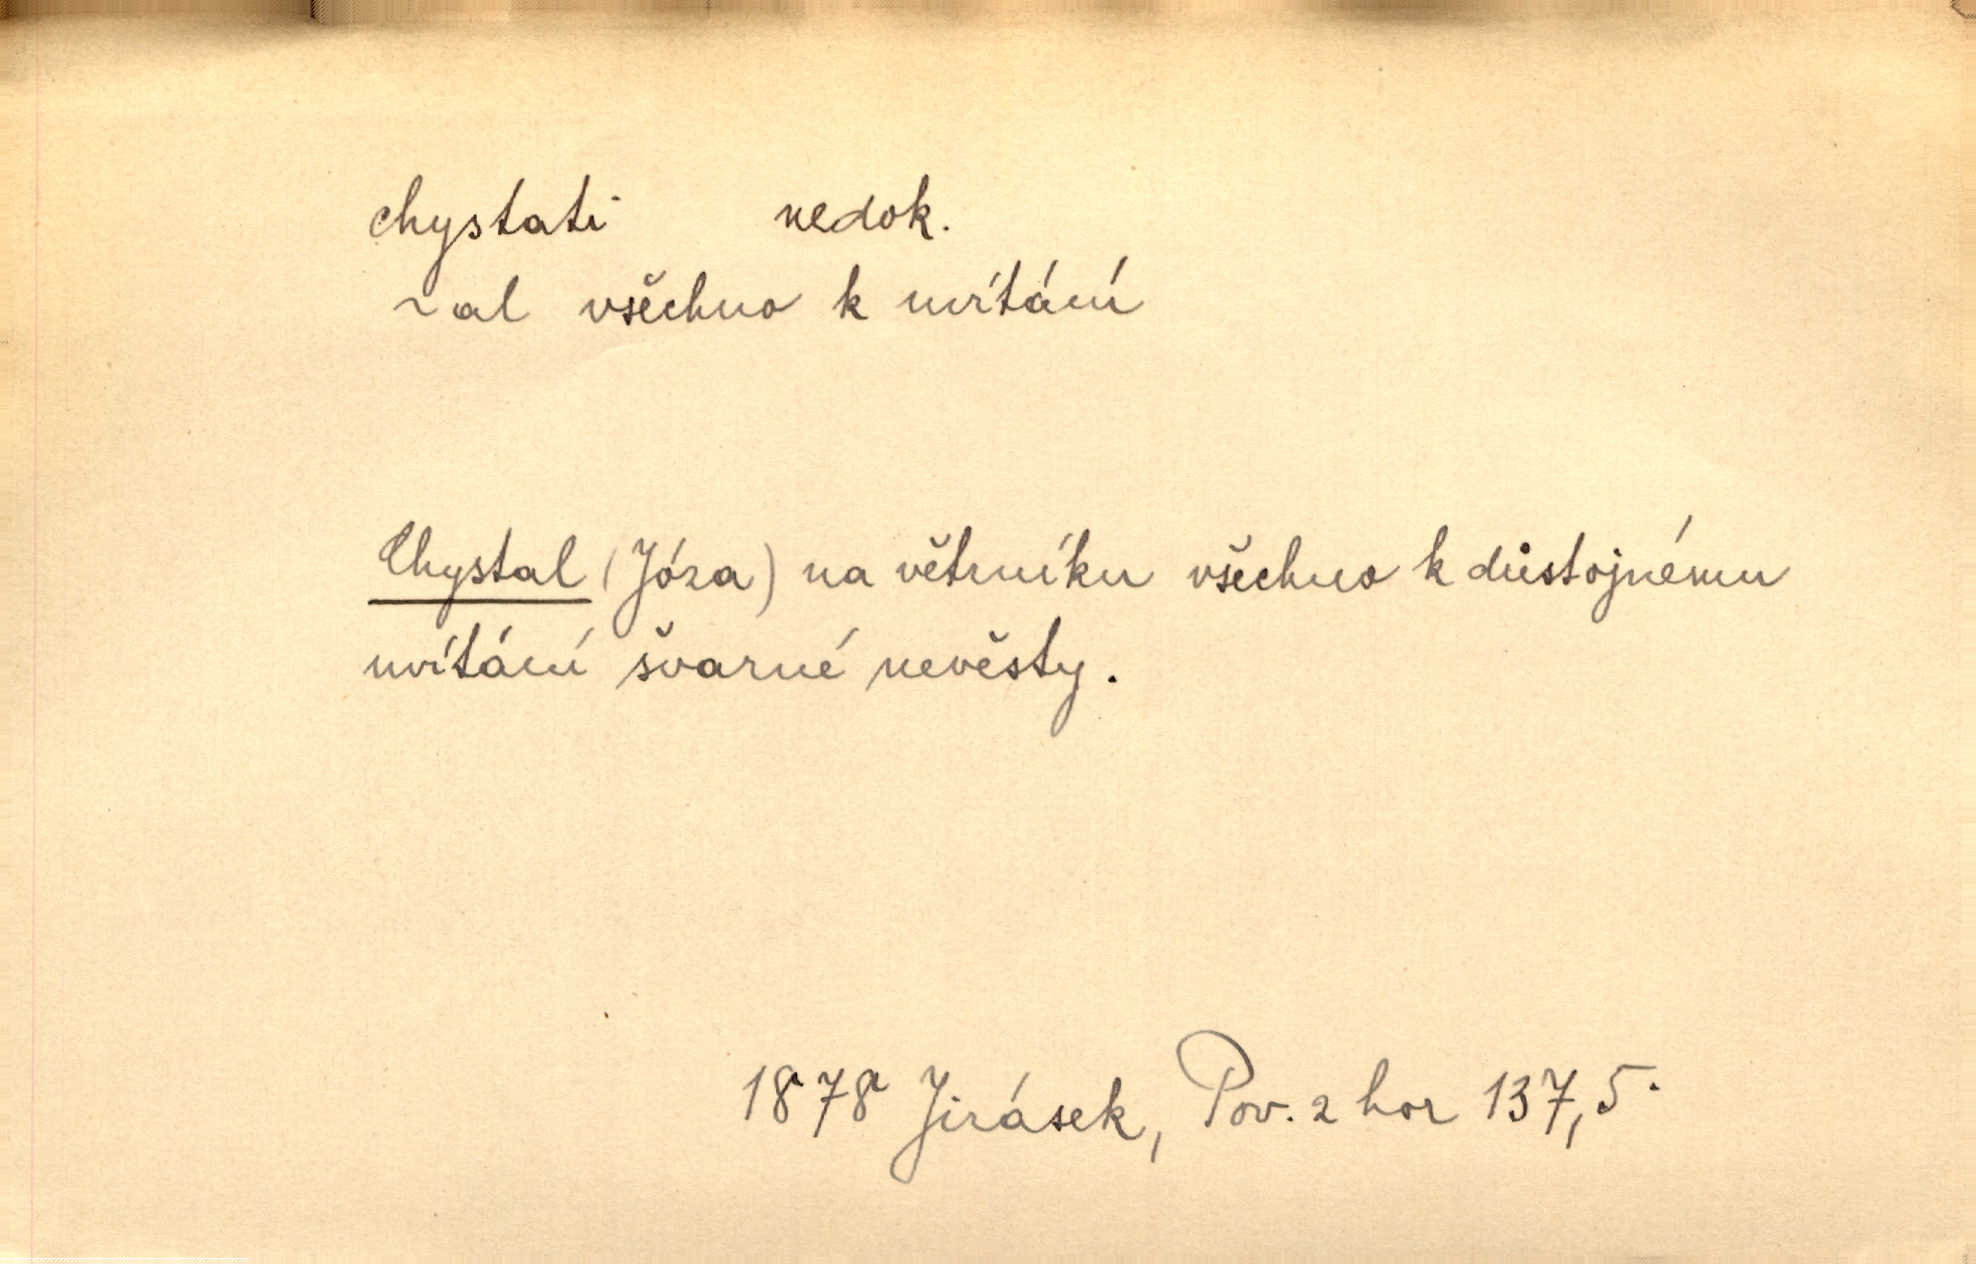 chystati nedok.
~al všechno k uvítání
Chystal (Józa) na větrníku všechno k důstojnému
uvítání švarné nevěsty.
1878 Jirásek, Pov. z hor 137,5.